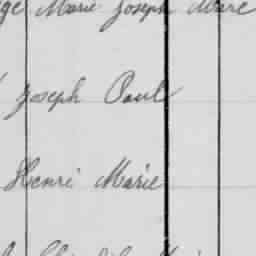 Marie Joseph Marc
Joseph Paul
Henri Marie